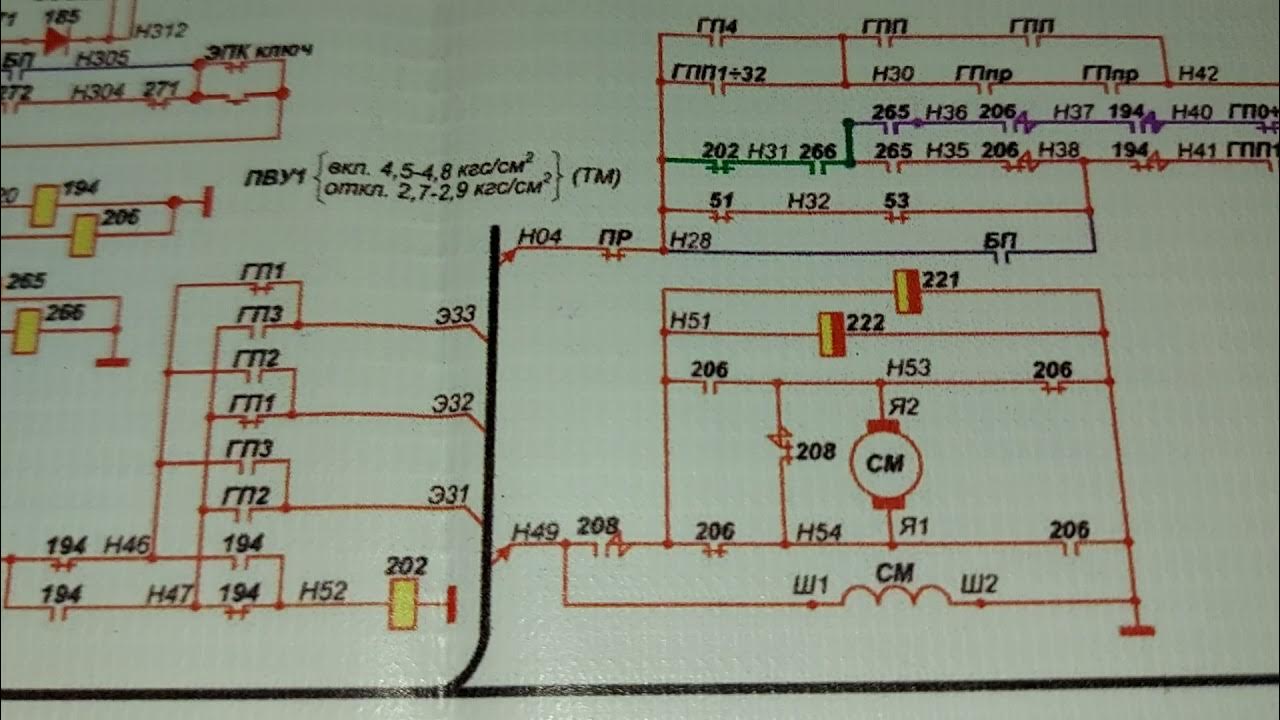 185
Н312
БП
Н305
ЭПК ключ
272
Н304
271
194
206
265
266
ПВУ1 { вкл. 4,5-4,8 кгс/см²
откл. 2,7-2,9 кгс/см² } (ТМ)
ГП1
ГП3
Э33
ГП2
ГП1
Э32
ГП3
ГП2
Э31
194
Н46
194
194
Н47
194
Н52
202
ГП4
ГПП
ГПП
ГПП1÷32
Н30
ГПпр
ГПпр
Н42
265
Н36
206
Н37
194
Н40
ГП0+
202
Н31
266
265
Н35
206
Н38
194
Н41
ГПП1
51
Н32
53
Н04
ПР
Н28
БП
221
Н51
222
206
Н53
206
Я2
208
СМ
Н49
208
206
Н54
Я1
206
Ш1
СМ
Ш2